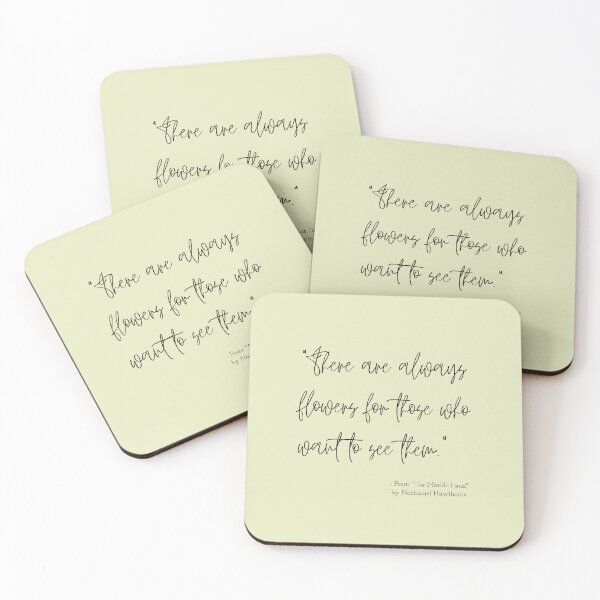 "There are always
flowers for those who
them."
"There are always
flowers for those who
want to see them."
"There are always
flowers for those who
want to see them"
- From
by
"There are always
flowers for those who
want to see them."
- From "The Marble Faun"
by Nathaniel Hawthorne